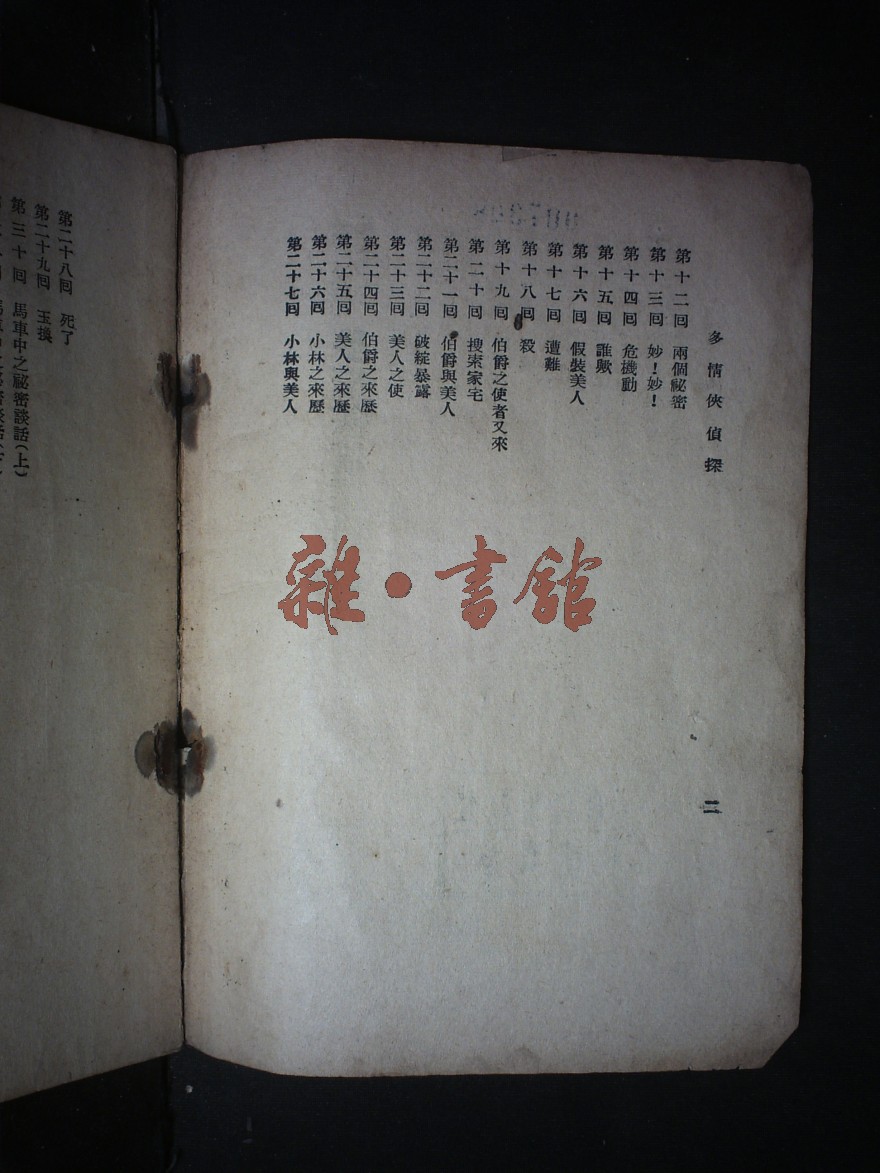 多情俠偵探
第十二回 兩個祕密
第十三回 妙！妙！
第十四回 危機動
第十五回 誰歟
第十六回 假裝美人
第十七回 遭難
第十八回 殺
第十九回 伯爵之使者又來
第二十回 搜索家宅
第二十一回 伯爵與美人
第二十二回 破綻暴露
第二十三回 美人之使
第二十四回 伯爵之來歷
第二十五回 美人之來歷
第二十六回 小林之來歷
第二十七回 小林與美人
二
第二十八回 死了
第二十九回 玉換
第三十回 馬車中之祕密談話（上）
雜·書館